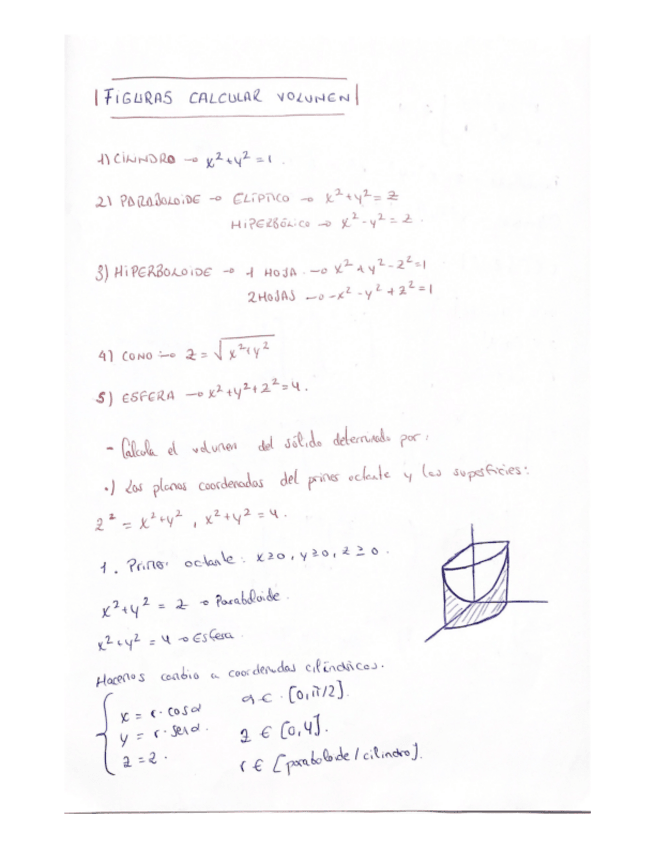 FIGURAS CALCULAR VOLUMEN
1) CILINDRO → x²+y²=1.
2) PARABOLOIDE → ELÍPTICO → x²+y²=z
HIPERBÓLICO → x²-y²=z.
3) HIPERBOLOIDE → 1 HOJA → x²+y²-z²=1
2 HOJAS → -x²-y²+z²=1
4) CONO → z=√x²+y²
5) ESFERA → x²+y²+z²=4.
- Calcula el volumen del sólido determinado por:
·) Los planos coordenados del primer octante y las superficies:
z² = x²+y², x²+y²=4.
1. Primer octante: x≥0, y≥0, z≥0.
x²+y² = z → Paraboloide.
x²+y² = 4 → Esfera.
Hacemos cambio a coordenadas cilíndricas.
x = r·cosα α ∈ [0,π/2].
y = r·senα. z ∈ [0,4].
z=z. r ∈ [paraboloide/cilindro].